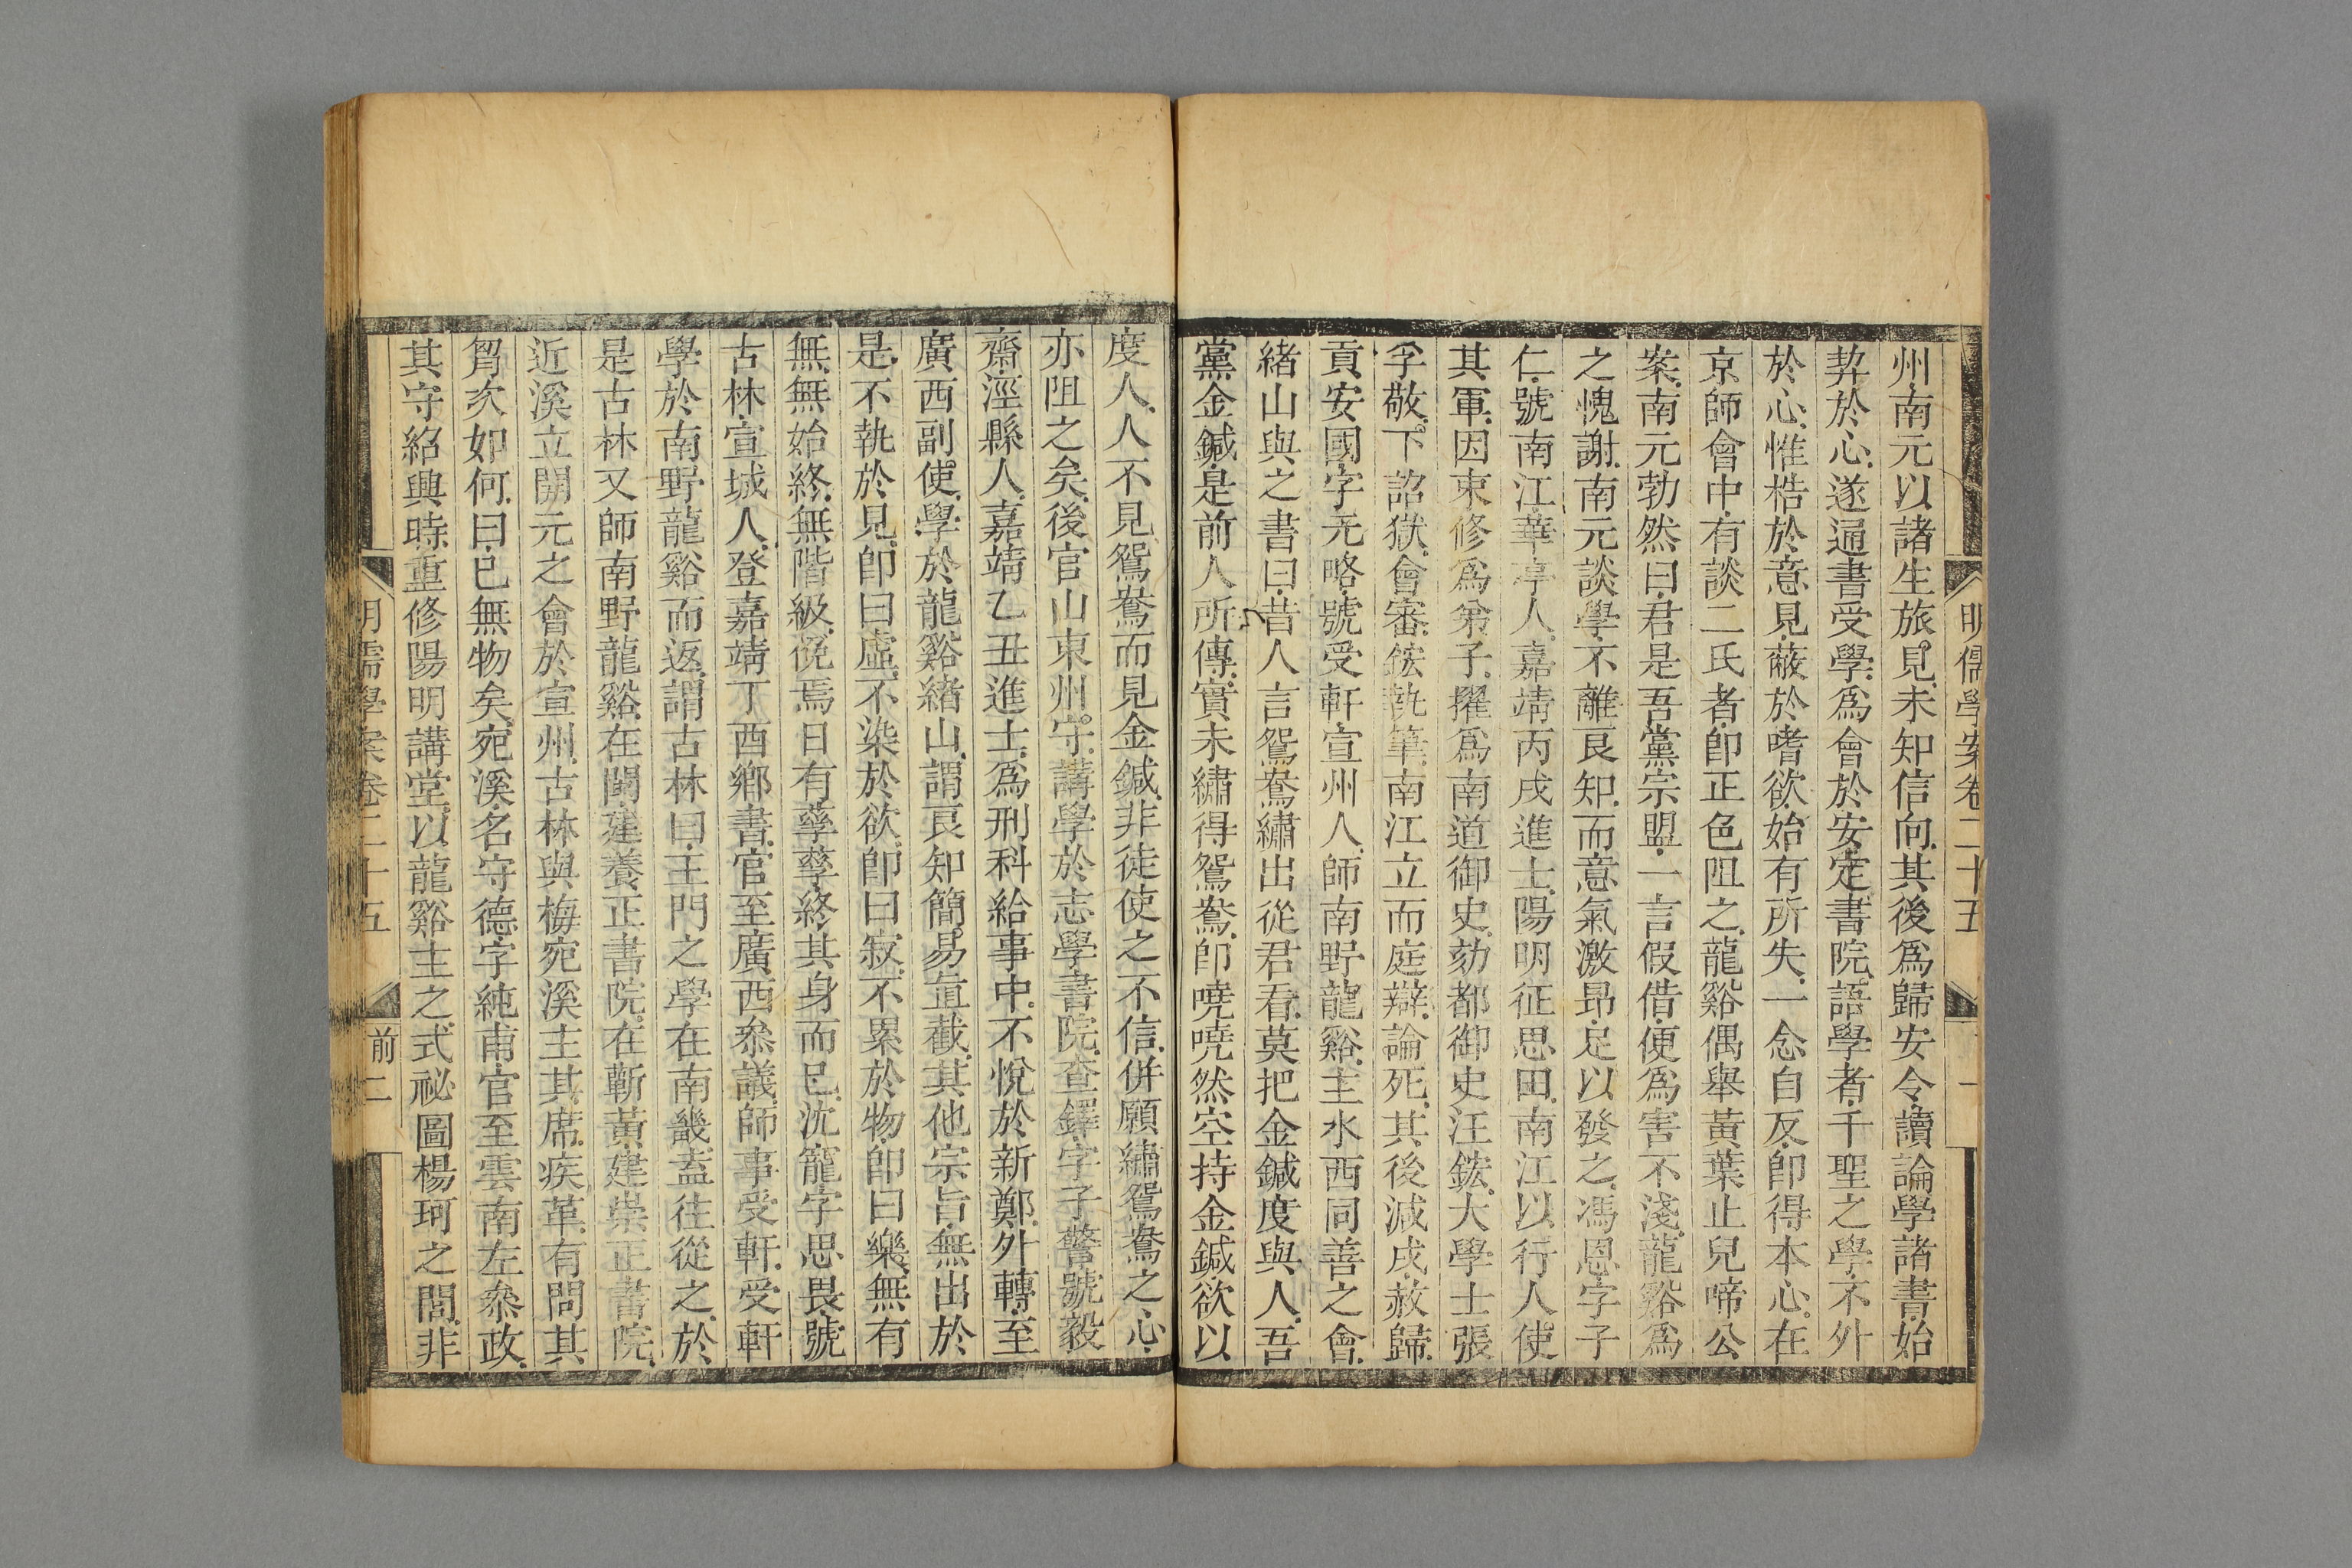 明儒學案卷二十五
一
州南元以諸生旅見未知信向其後爲歸安令讀論學諸書始
契於心遂通書受學爲會於安定書院語學者千聖之學不外
於心惟梏於意見蔽於嗜欲始有所失一念自反卽得本心在
京師會中有談二氏者卽正色阻之龍谿偶舉黃葉止兒啼公
案南元勃然曰君是吾黨宗盟一言假借便爲害不淺龍谿爲
之愧謝南元談學不離良知而意氣激昂足以發之馮恩字子
仁號南江華亭人嘉靖丙戌進士陽明征思田南江以行人使
其軍因束修爲弟子擢爲南道御史劾都御史汪鋐大學士張
孚敬下詔獄會審鋐執筆南江立而庭辯論死其後減戍赦歸
貢安國字元略號受軒宣州人師南野龍谿主水西同善之會
緒山與之書曰昔人言鴛鴦繡出從君看莫把金鍼度與人吾
黨金鍼是前人所傳實未繡得鴛鴦卽嘵嘵然空持金鍼欲以
度人人不見鴛鴦而見金鍼非徒使之不信併願繡鴛鴦之心
亦阻之矣後官山東州守講學於志學書院查鐸字子警號毅
齋涇縣人嘉靖乙丑進士爲刑科給事中不悅於新鄭外轉至
廣西副使學於龍谿緒山謂良知簡易直截其他宗旨無出於
是不執於見卽曰虛不染於欲卽曰寂不累於物卽曰樂無有
無無始終無階級俛焉日有孳孳終其身而已沈寵字思畏號
古林宣城人登嘉靖丁酉鄉書官至廣西叅議師事受軒受軒
學於南野龍谿而返謂古林曰王門之學在南畿盍往從之於
是古林又師南野龍谿在閩建養正書院在蘄黃建崇正書院
近溪立開元之會於宣州古林與梅宛溪主其席疾革有問其
胷次如何曰已無物矣宛溪名守德字純甫官至雲南左叅政
其守紹興時重修陽明講堂以龍谿主之式祕圖楊珂之閭非
明儒學案卷二十五
前二